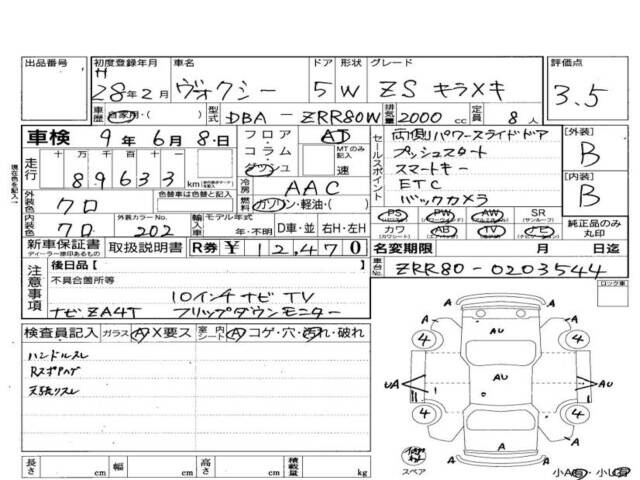 出品番号
初度登録年月 車名 ドア 形状 グレード 評価点
H
28年2月 ヴォクシー 5 W ZS キラメキ 3.5
車歴 自家用・( ) 型式 DBA-ZRR80W 排気量 2000 cc 定員 8人
車検 9年6月8日
フロア AT
コラム MTのみ記入
ダッシュ 速
セールスポイント
両側パワースライドドア
プッシュスタート
スマートキー
ETC
バックカメラ
[外装]
B
[内装]
B
現在色を記入
走行 十万 万 千 百 十 一
8 9 6 3 3 km
冷房 AAC
燃料 ガソリン・軽油・( )
外装色 クロ 色替車は色替と記入
内装色 クロ 外装カラーNo. 202
輸入車 モデル年式 年・不明 D車・並 右H・左H
PS PW AW SR
(サンルーフ)
カワ AB TV ナビ
純正品のみ丸印
新車保証書 取扱説明書 R券 ¥ 12,470
ディーラー捺印あるもの
名変期限 月 日迄
車台No. ZRR80-0203544
ロック車
注意事項
後日品[ ]
不具合箇所等
10インチナビ TV
ナビZA4T フリップダウンモニター
検査員記入 ガラス A X要ス 室内シート A コゲ・穴・汚れ・破れ
ハンドルスレ
天張リスレ
A A
A AU A
4 4
UA AU AU
4 4
A AU A
A A
スペア
小A有・小U有
長さ cm 幅 cm 高さ cm 積載量 kg